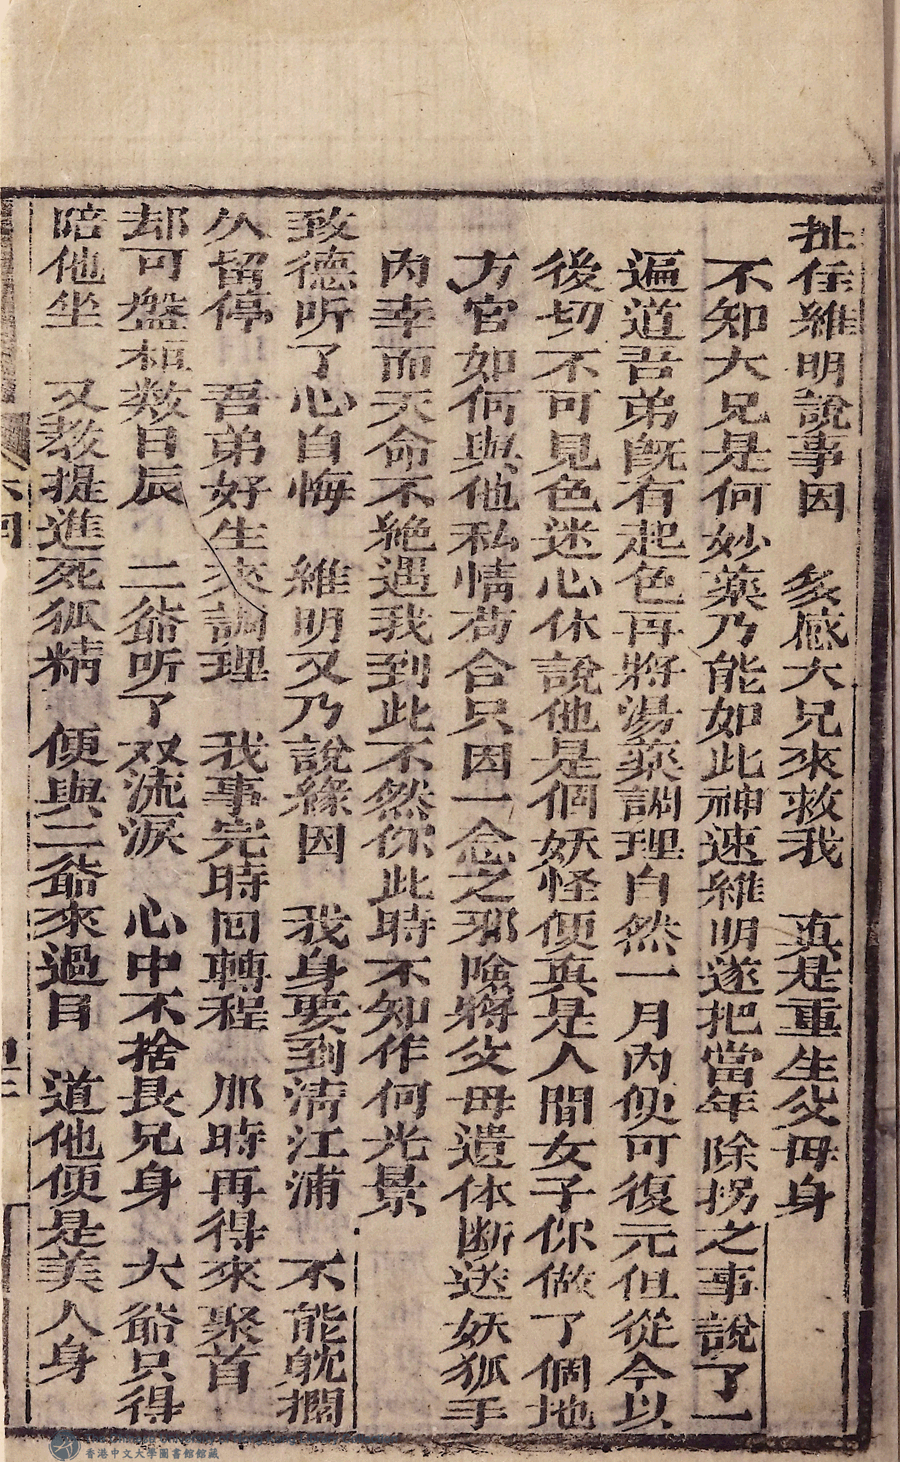 扯住維明說事因　多感大兄來救我　真是重生父母身
不知大兄是何妙藥乃能如此神速維明遂把當年除拐之事說了一
遍道吾弟既有起色再將湯藥調理自然一月內便可復元但從今以
後切不可見色迷心休說他是個妖怪便真是人間女子你做了個地
方官如何與他私情苟合只因一念之邪險將父母遺体断送妖狐手
內幸而天命不絕遇我到此不然你此時不知作何光景
致德听了心自悔　維明又乃說緣因　我身要到清江浦　不能躭擱
久留停　吾弟好生來調理　我事完時囘轉程　那時再得來聚首
却可盤桓数日辰　二爺听了双流淚　心中不捨長兄身　大爺只得
陪他坐　又教提進死狐精　便與二爺來過目　道他便是美人身
香港中文大學圖書館館藏